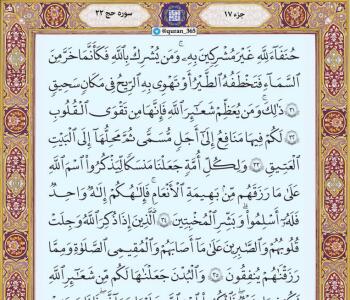 سوره حج ۲۲
@quran_365
جزء ۱۷
حُنَفَاءَ لِلَّهِ غَيْرَ مُشْرِكِينَ بِهِ ۚ وَمَن يُشْرِكْ بِاللَّهِ فَكَأَنَّمَا خَرَّ مِنَ
السَّمَاءِ فَتَخْطَفُهُ الطَّيْرُ أَوْ تَهْوِي بِهِ الرِّيحُ فِي مَكَانٍ سَحِيقٍ
٣١ ذَٰلِكَ وَمَن يُعَظِّمْ شَعَائِرَ اللَّهِ فَإِنَّهَا مِن تَقْوَى الْقُلُوبِ
٣٢ لَكُمْ فِيهَا مَنَافِعُ إِلَىٰ أَجَلٍ مُّسَمًّى ثُمَّ مَحِلُّهَا إِلَى الْبَيْتِ
الْعَتِيقِ ٣٣ وَلِكُلِّ أُمَّةٍ جَعَلْنَا مَنسَكًا لِّيَذْكُرُوا اسْمَ اللَّهِ
عَلَىٰ مَا رَزَقَهُم مِّن بَهِيمَةِ الْأَنْعَامِ ۗ فَإِلَٰهُكُمْ إِلَٰهٌ وَاحِدٌ
فَلَهُ أَسْلِمُوا ۗ وَبَشِّرِ الْمُخْبِتِينَ ٣٤ الَّذِينَ إِذَا ذُكِرَ اللَّهُ وَجِلَتْ
قُلُوبُهُمْ وَالصَّابِرِينَ عَلَىٰ مَا أَصَابَهُمْ وَالْمُقِيمِي الصَّلَاةِ وَمِمَّا
رَزَقْنَاهُمْ يُنفِقُونَ ٣٥ وَالْبُدْنَ جَعَلْنَاهَا لَكُم مِّن شَعَائِرِ اللَّهِ